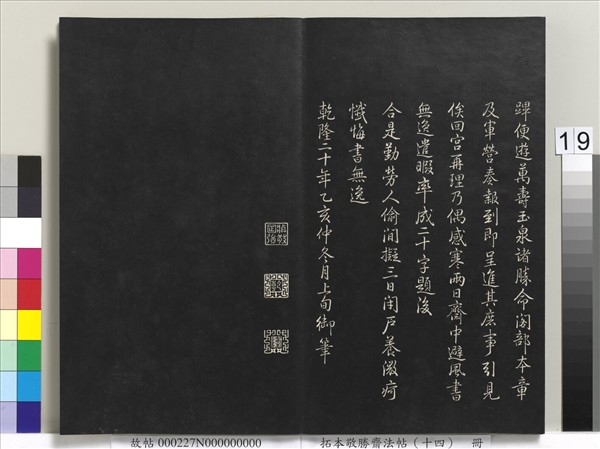 蹕便遊萬壽玉泉諸勝命閣部本章
及軍營奏報到即呈進其庶事引見
俟回宮再理乃偶感寒兩日齋中避風書
無逸遣暇率成二十字題後
合是勤勞人偷閒擬三日閉戶養微疴
懺悔書無逸
乾隆二十年乙亥仲冬月上旬御筆
19
故帖 000227N000000000
拓本敬勝齋法帖(十四) 冊